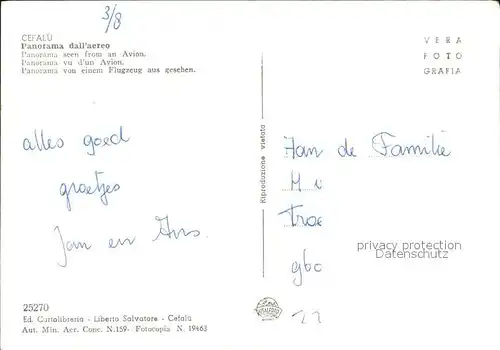 3/8
CEFALÙ
Panorama dall'aereo
Panorama seen from an Avion.
Panorama vu d'un Avion.
Panorama von einem Flugzeug aus gesehen.
VERA
FOTO
GRAFIA
alles goed
groetjes
Jan en Ans.
Riproduzione vietata
Aan de Familie
M
Trae
gbo
22
privacy protection
Datenschutz
25270
Ed. Cartalibreria - Liberto Salvatore - Cefalù
Aut. Min. Aer. Conc. N.159- Fotocopia N. 19463